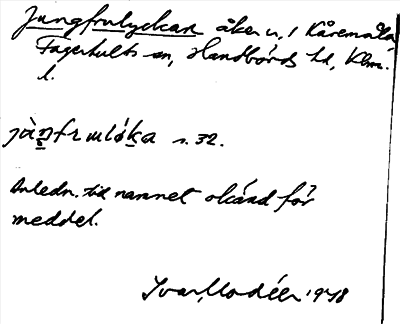 Jungfrulyckan åker i Kåremåla
Fagerhults sn, Handbörds hd, Klm.
l.
s. 32.
Anledn. till namnet okänd för
meddel.
Ivar Modéer 1928